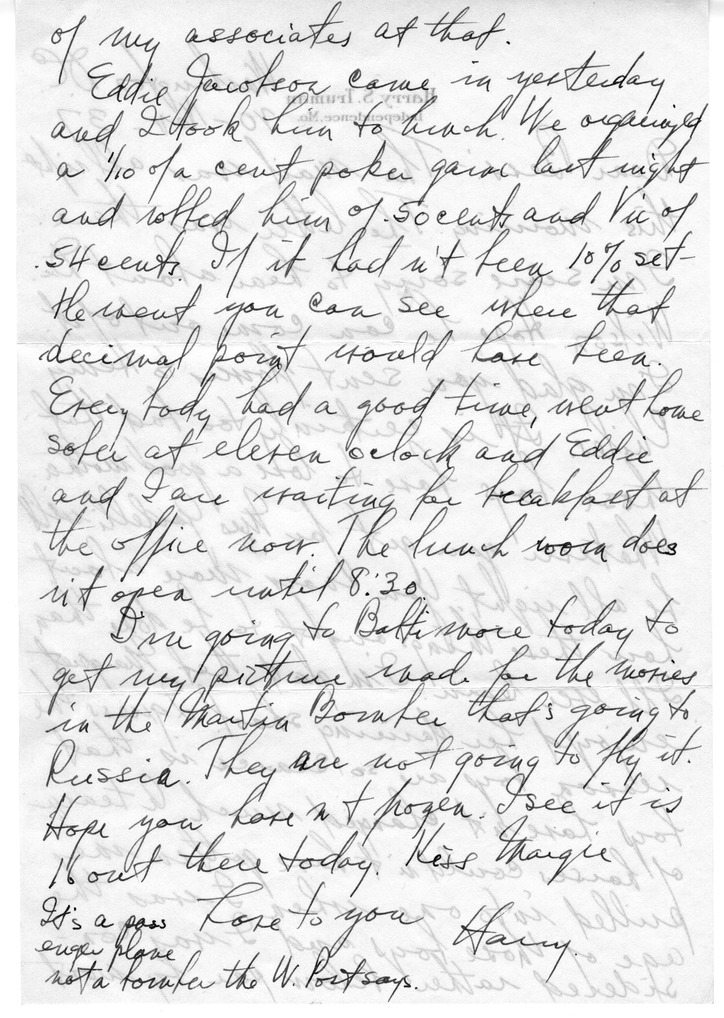 of my associates at that.
Eddie Jacobson came in yesterday
and I took him to lunch. We organized
a 1/10 of a cent poker game last night
and robbed him of .50 cents and Vic of
.54 cents. If it had n't been 10% set-
tlement you can see where that
decimal point would have been.
Every body had a good time, went home
sober at eleven oclock and Eddie
and I are waiting for breakfast at
the office now. The lunch room does
n't open until 8:30.
I'm going to Baltimore today to
get my picture made for the movies
in the Martin Bomber that's going to
Russia. They are not going to fly it.
Hope you have n't frozen. I see it is
16 out there today. Kiss Margie
Love to you
Harry.
It's a pass
enger plane
not a bomber the W. Post says.
Harry S. Truman
Independence, Mo.